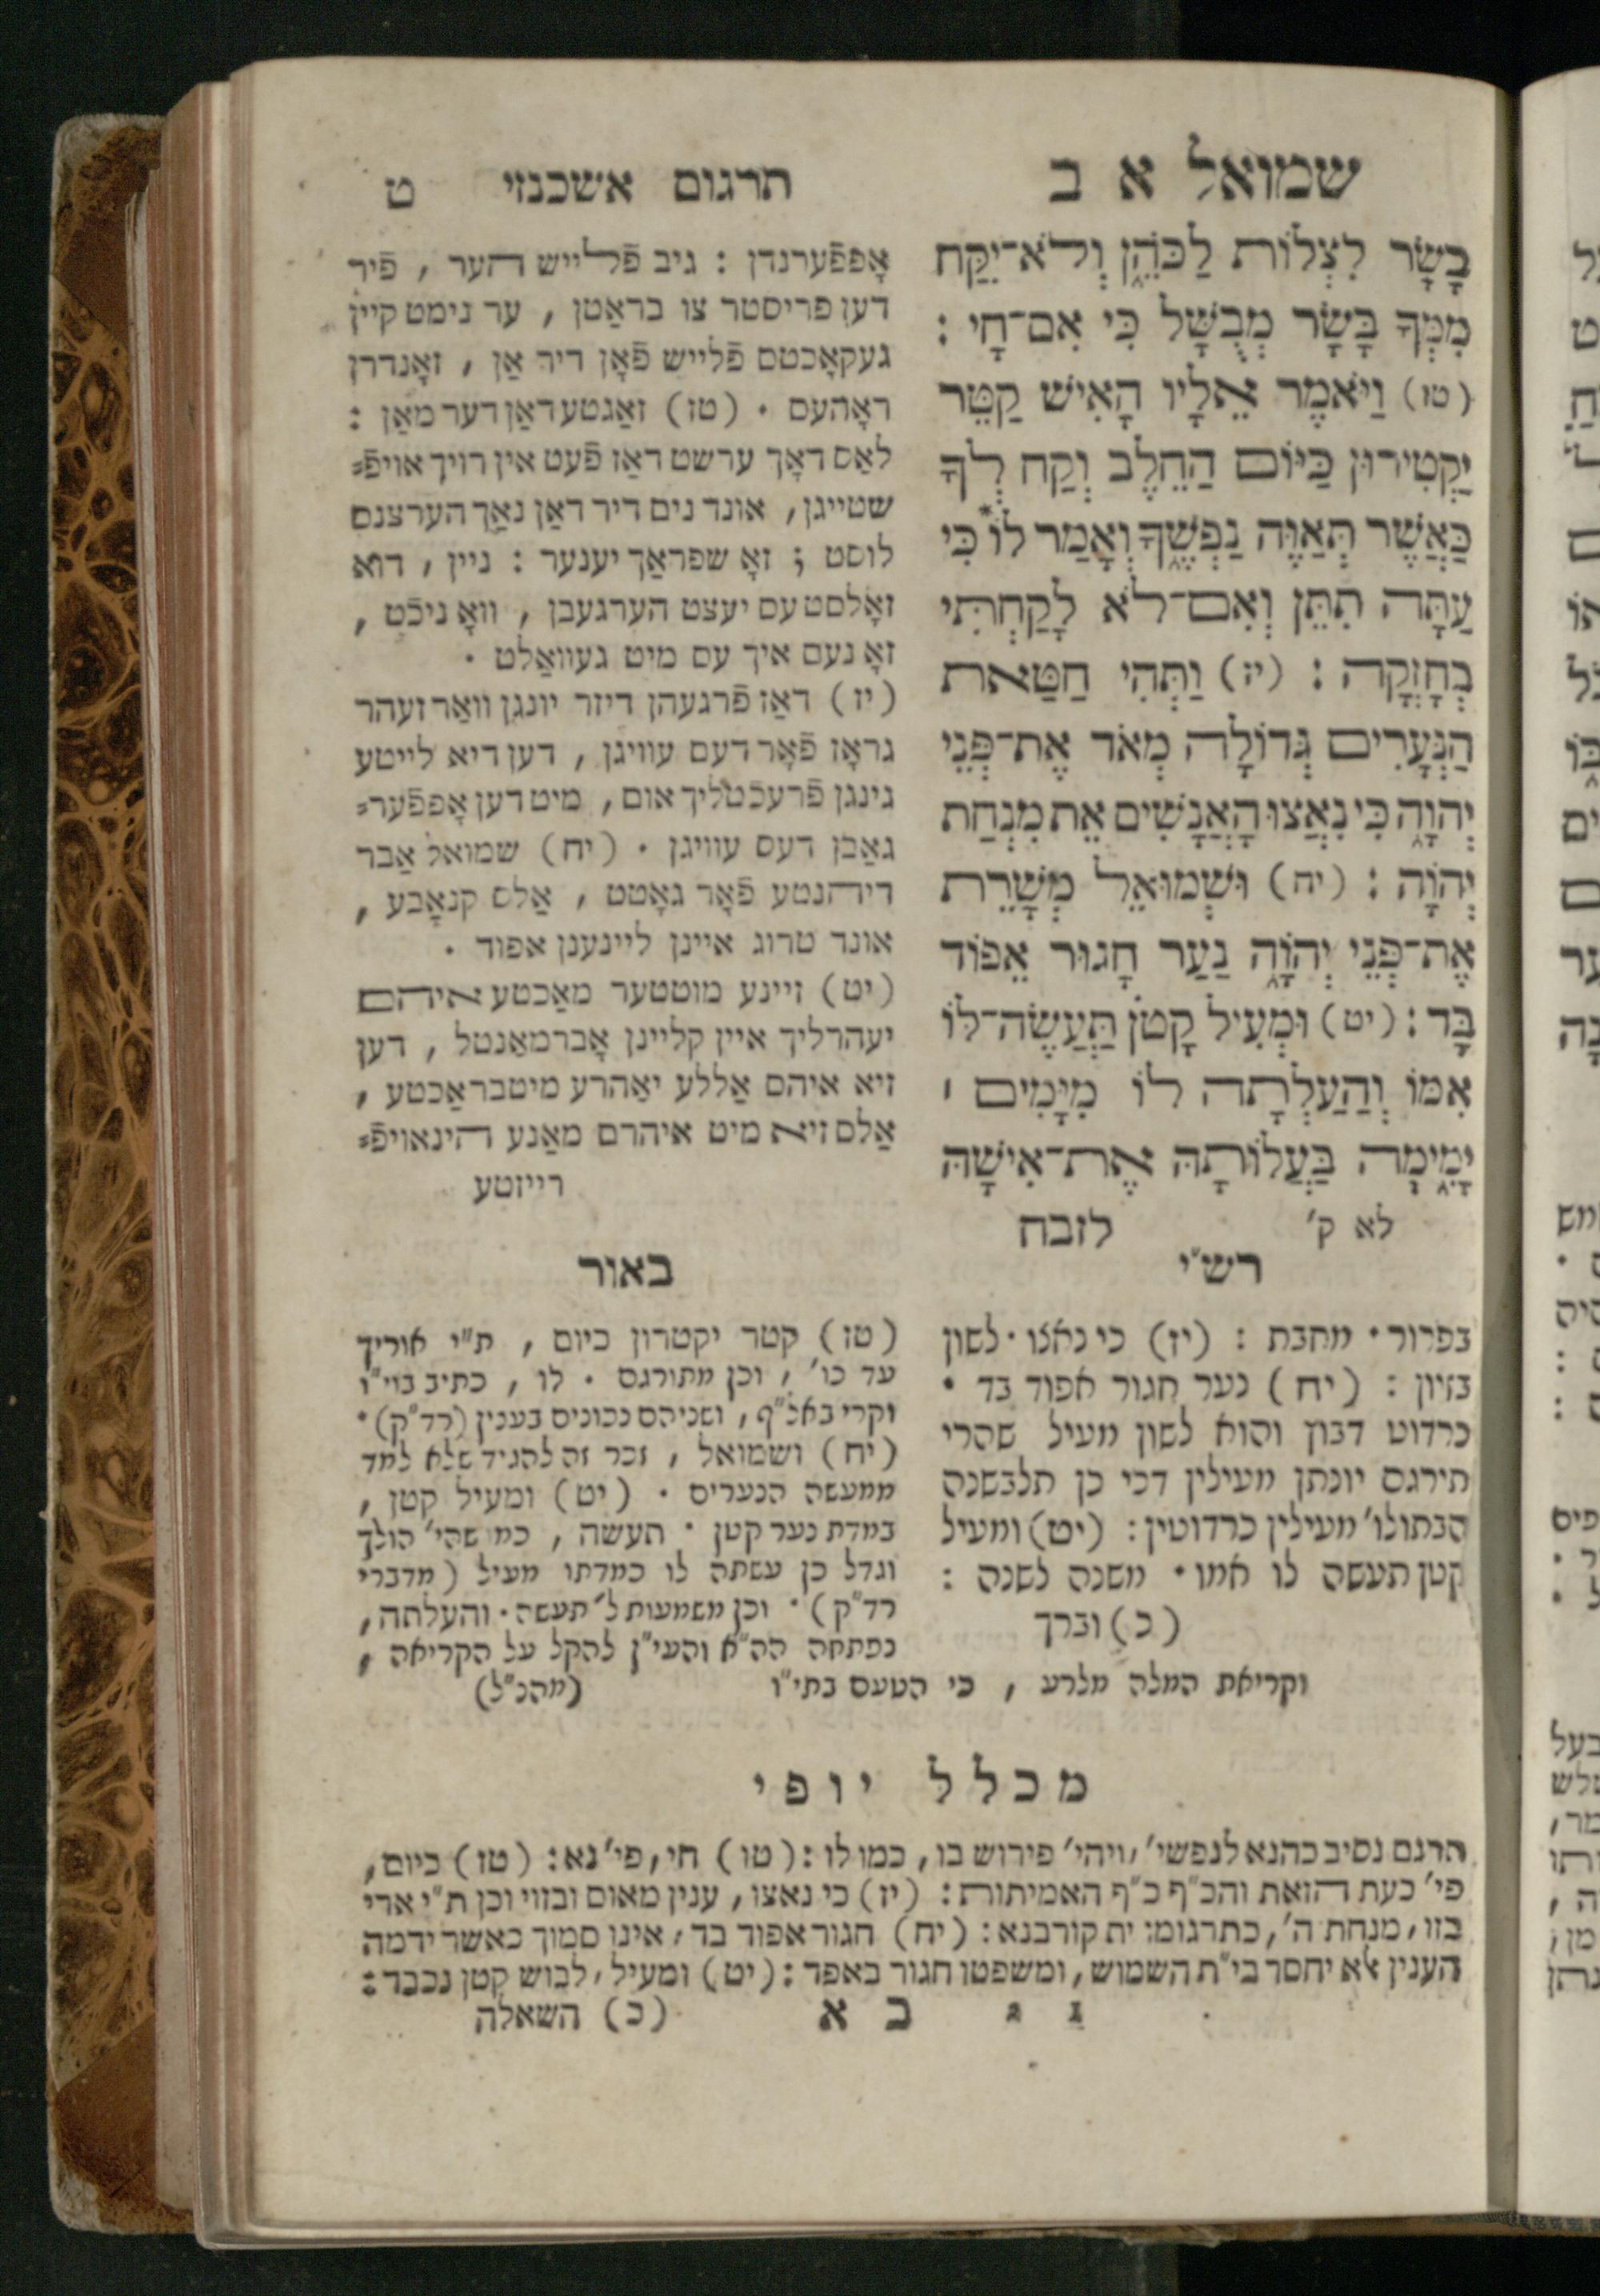 שמואל א ב
בָּשָׂר לִצְלוֹת לַכֹּהֵן וְלֹא־יִקַּח
מִמְּךָ בָּשָׂר מְבֻשָּׁל כִּי אִם־חָי :
(טז) וַיֹּאמֶר אֵלָיו הָאִישׁ קַטֵּר
יַקְטִירוּן כַּיּוֹם הַחֵלֶב וְקַח לְךָ
כַּאֲשֶׁר תְּאַוֶּה נַפְשֶׁךָ וְאָמַר לוֹ* כִּי
עַתָּה תִתֵּן וְאִם־לֹא לָקַחְתִּי
בְחָזְקָה : (יז) וַתְּהִי חַטַּאת
הַנְּעָרִים גְּדוֹלָה מְאֹד אֶת־פְּנֵי
יְהוָה כִּי נִאֲצוּ הָאֲנָשִׁים אֵת מִנְחַת
יְהוָה : (יח) וּשְׁמוּאֵל מְשָׁרֵת
אֶת־פְּנֵי יְהוָה נַעַר חָגוּר אֵפוֹד
בָּד : (יט) וּמְעִיל קָטֹן תַּעֲשֶׂה־לּוֹ
אִמּוֹ וְהַעַלְתָה לוֹ מִיָּמִים ׀
יָמִימָה בַּעֲלוֹתָהּ אֶת־אִישָׁהּ
לא ק׳ לזבח
תרגום אשכנזי ט
אָפפֿערנדן : גיב פֿלייש הער , פֿיר
דען פריסטר צו בראַטן , ער נימט קיין
געקאָכטס פֿלייש פֿאָן דיר אַן , זאָנדרן
ראָהעס . (טז) זאַגטע דאַן דער מאַן :
לאַס דאָך ערשט דאַז פֿעט אין רויך אויפֿ=
שטייגן, אונד נים דיר דאַן נאַך הערצנס
לוסט ; זאָ שפראַך יענער : ניין , דוא
זאָלסט עס יעצט הערגעבן , וואָ ניכֿט ,
זאָ נעם איך עס מיט געוואַלט .
(יז) דאַז פֿרגעהן דיזר יונגן וואַר זעהר
גראָז פֿאָר דעם עוויגן , דען דיא לייטע
גינגן פֿרעכֿטליך אום, מיט דען אָפפֿער=
גאַבן דעס עוויגן . (יח) שמואל אַבר
דיהנטע פֿאָר גאָטט , אַלס קנאָבע ,
אונד טרוג איינן ליינענן אפוד .
(יט) זיינע מוטטער מאַכטע איהם
יעהרליך איין קליינן אָברמאַנטל , דען
זיא איהם אַללע יאַהרע מיטבראַכטע ,
אַלס זיא מיט איהרם מאַנע הינאויפֿ=
רייזטע
רש״י
בפרור . מחבת : (יז) כי נאצו . לשון
בזיון : (יח) נער חגור אפוד בד .
כרדוט דבוץ והוא לשון מעיל שהרי
תירגם יונתן מעילין דכי כן תלבשנה
הבתולו׳ מעילין כרדוטין : (יט) ומעיל
קטן תעשה לו אמו . משנה לשנה :
(כ) וברך
באור
(טז) קטר יקטרון כיום , ת״י אוריך
עד כו׳ , וכן מתורגם . לו , כתיב בוי״ו
וקרי באל״ף, ושניהם נכונים בענין (רד״ק) .
(יח) ושמואל , זכר זה להגיד שלא למד
ממעשה הנערים . (יט) ומעיל קטן ,
במדת נער קטן . תעשה , כמו שהי׳ הולך
וגדל כן עשתה לו כמדתו מעיל (מדברי
רד״ק) . וכן משמעות ל׳ תעשה . והעלתה,
נפתחה הה״א והעי״ן להקל על הקריאה ,
וקריאת המלה מלרע , כי הטעם בתי״ו (מהנ״ל)
מכלל יופי
תרגם נסיב כהנא לנפשי׳, ויהי׳ פירוש בו, כמו לו : (טו) חי, פי׳ נא : (טז) כיום,
פי׳ כעת הזאת והכ״ף כ״ף האמיתות : (יז) כי נאצו, ענין מאוס ובזוי וכן ת״י ארי
בזו, מנחת ה׳, כתרגומו: ית קורבנא : (יח) חגור אפוד בד, אינו סמוך כאשר ידמה
הענין לא יחסר בי״ת השמוש, ומשפטו חגור באפד : (יט) ומעיל, לבוש קטן נכבד :
ב א (כ) השאלה